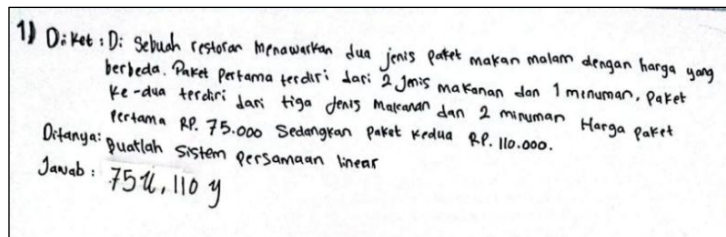 1) Diket : Di Sebuah restoran menawarkan dua jenis paket makan malam dengan harga yang
berbeda. Paket Pertama terdiri dari 2 Jenis makanan dan 1 minuman, paket
ke-dua terdiri dari tiga jenis makanan dan 2 minuman Harga paket
Pertama RP. 75.000 Sedangkan paket kedua RP. 110.000.
Ditanya: Buatlah sistem persamaan linear
Jawab : 75x, 110 y